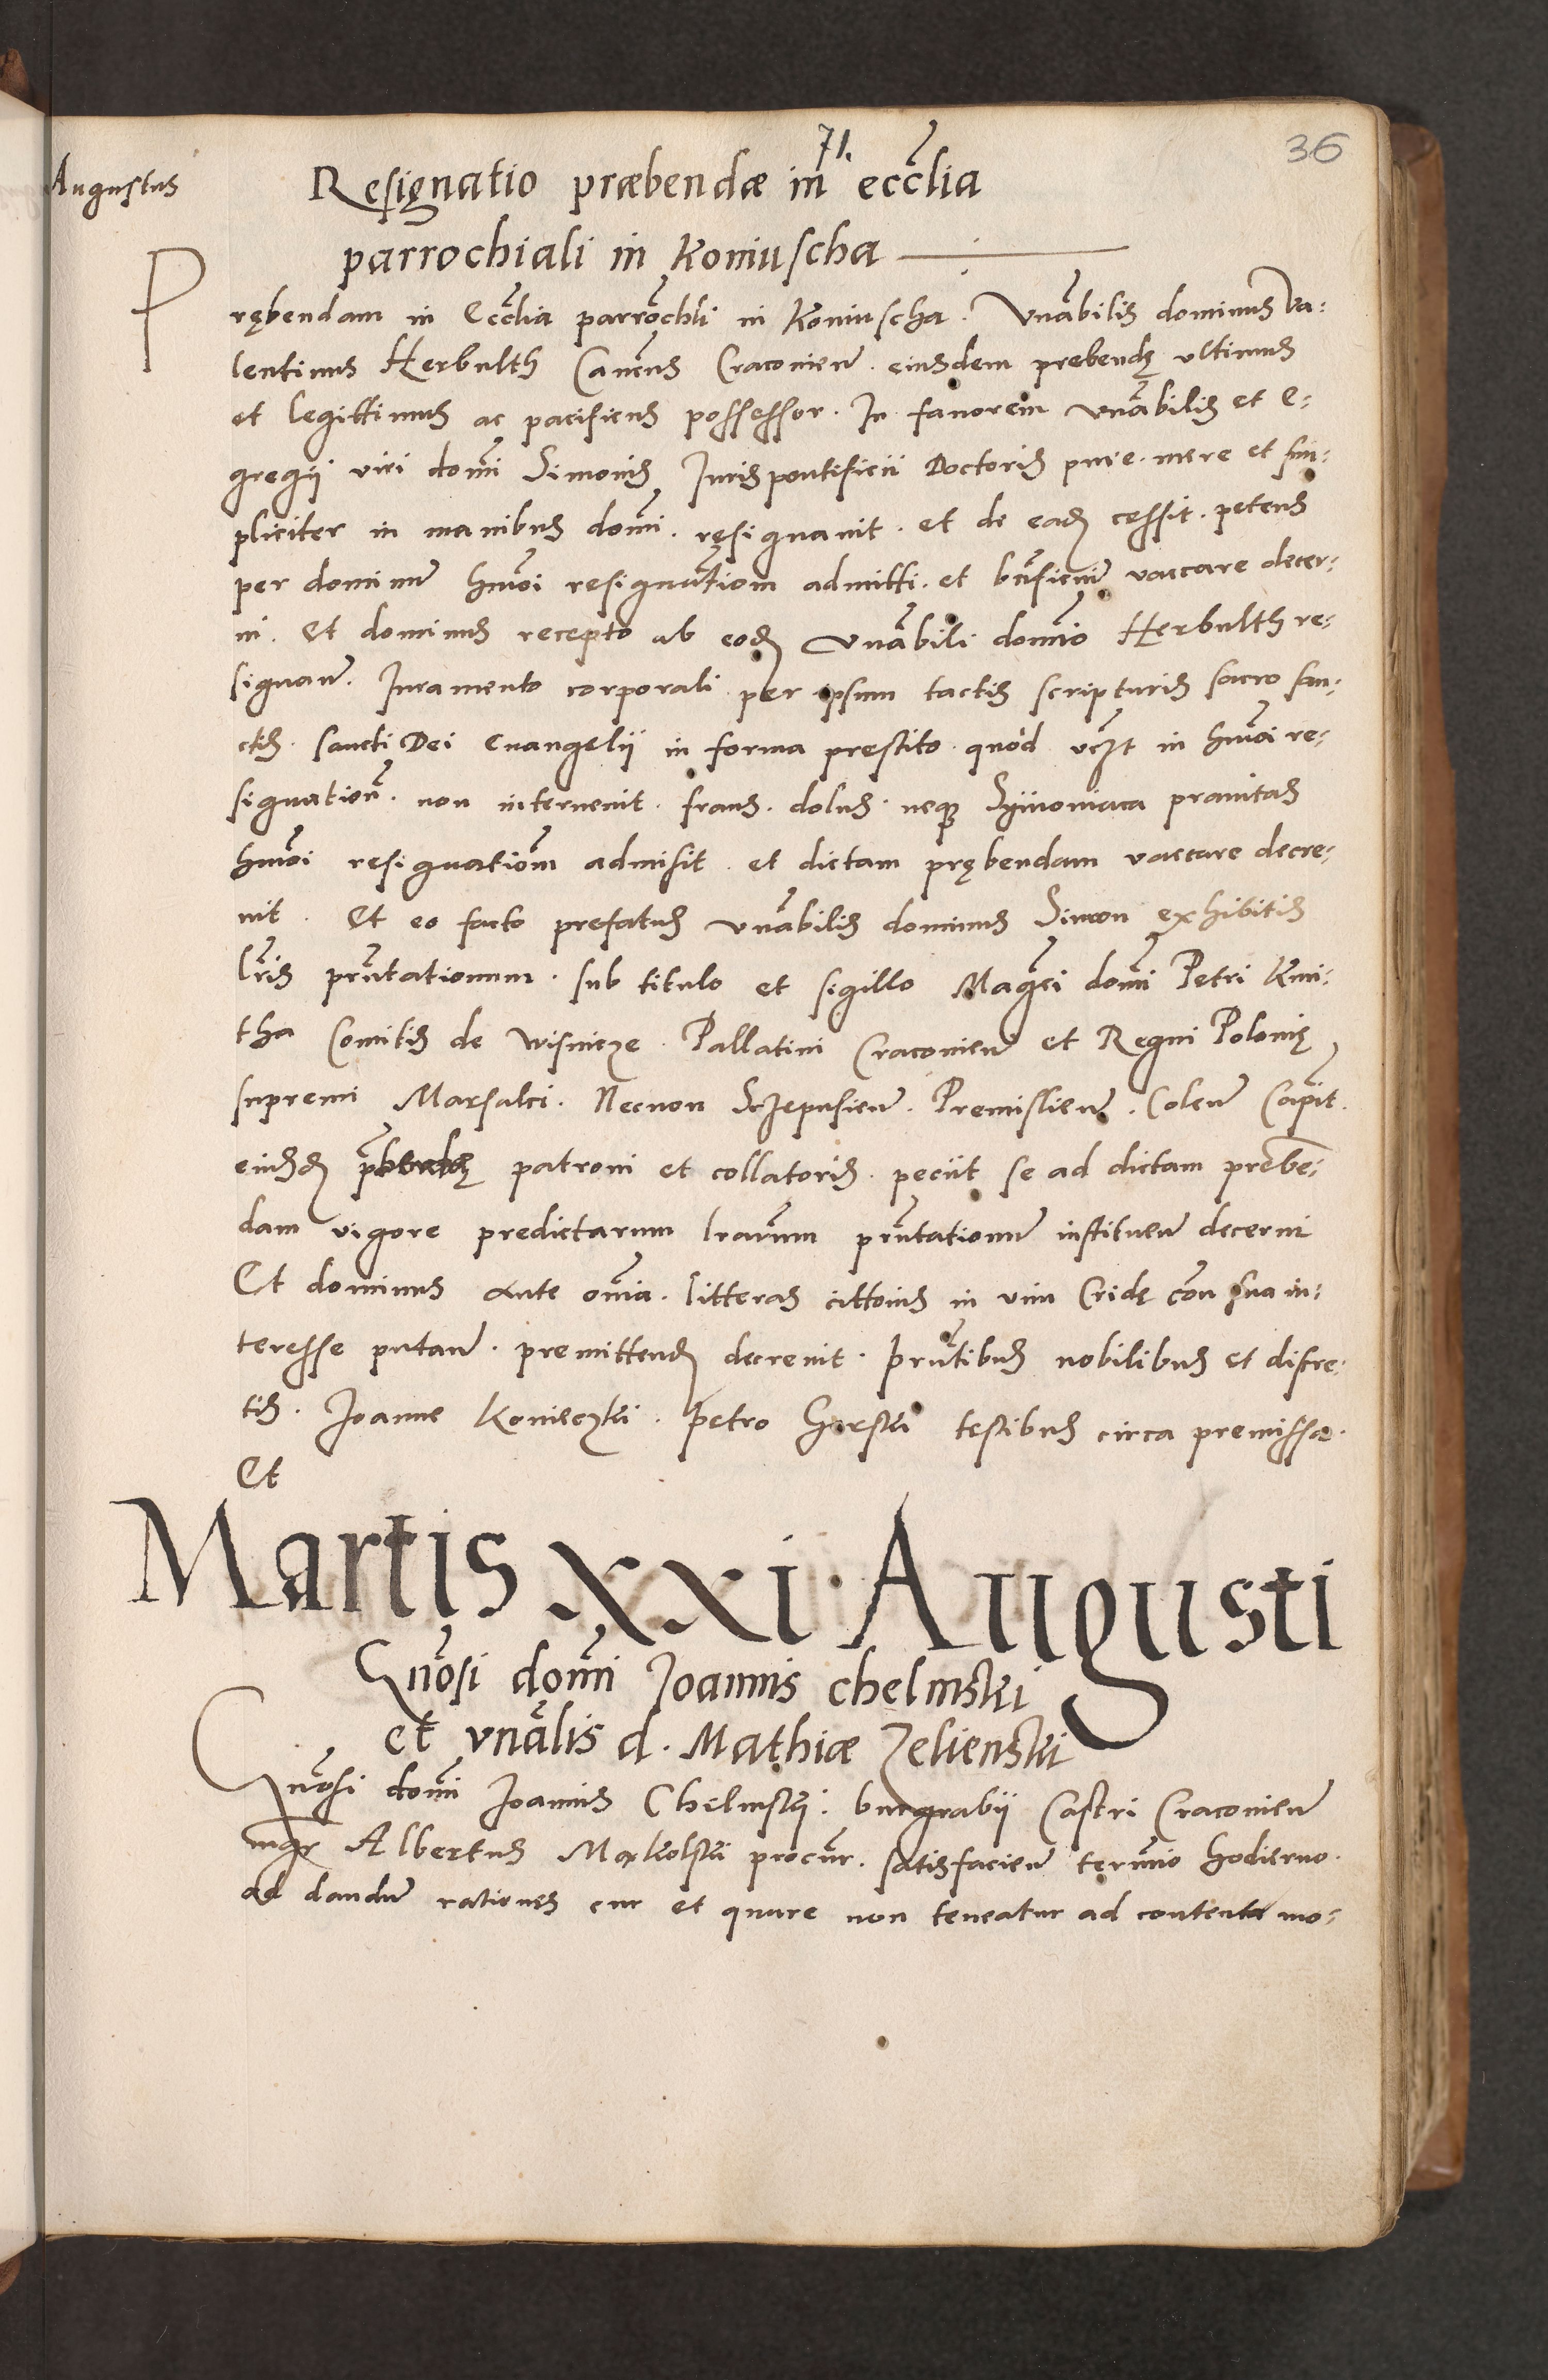 71.
36
Augustus
Resignatio præbendæ in eccl̃ia
parrochiali in Koniuscha
Prębendam in Eccl̃ia parrochl̃i in Koniuscha. Vnãbilis dominus Va-
lentinus Herbulth Cañcus Cracovien̄. eiusdem prebendę ultimus
et legittimus ac pacificus possessor. In favorem vnãbilis et E-
gregij viri dom̃i Simonis Juris pontificii Doctoris pure. mere et sim-
pliciter in manibus dom̃i. resignavit. et de eadẽ cessit. petens
per dominum̄ hmõi resignatiõm admitti. et bñficiũ vaccare decer-
ni. Et dominus recepto ab eodẽ vnãbili domĩo Herbulth re-
signan̄. Iuramento corporali per ipsum tactis scripturis sacro san-
ctis. sancti Dei Evangelii in forma prestito. quod vcz̃t in hmõi re-
signatiõe. non intervenit. fraus. dolus. neqз Symoniaca pravitas
hmõi resignatiõm admisit. et dictam prębendam vaccare decre-
vit. Et eo facto prefatus vnãbilis dominus Simon exhibitis
lr̃is prñtationum. sub titulo et sigillo Magc̃i dom̃i Petri Kmi-
tha Comitis de Wisnicze. Pallatini Cracovien̄ et Regni Polonię
supremi Marsalci. Necnon Sczepusien̄. Premislien̄. Colen̄ Capit̃.
eiusdẽ p̃bendę patroni et collatoris. peciit se ad dictam preben-
dam vigore predictarum lr̃arum prñtationum̄ instituen̄ decerni
Et dominus ante om̃ia. litteras cittõnis in vim Cridę cõn sua in-
teresse putan̄. premittendẽ decrevit. Prñtibus nobilibus et discre-
tis. Joanne Konieczki. Petro Gorski testibus circa premissa.
Et
Martis xxi Augusti
Gnõsi dom̃i Joannis chelmski
et vnãlis d. Mathiæ Zelienski
Gnõsi dom̃i Joannis Chelmskij. burgrabij Castri Cracovien̄
mgr̃ Albertus Markolski procur̃. satisfacien̄ termĩo hodierno.
ad dandum̄ rationes cur et quare non teneatur ad contenta mo-